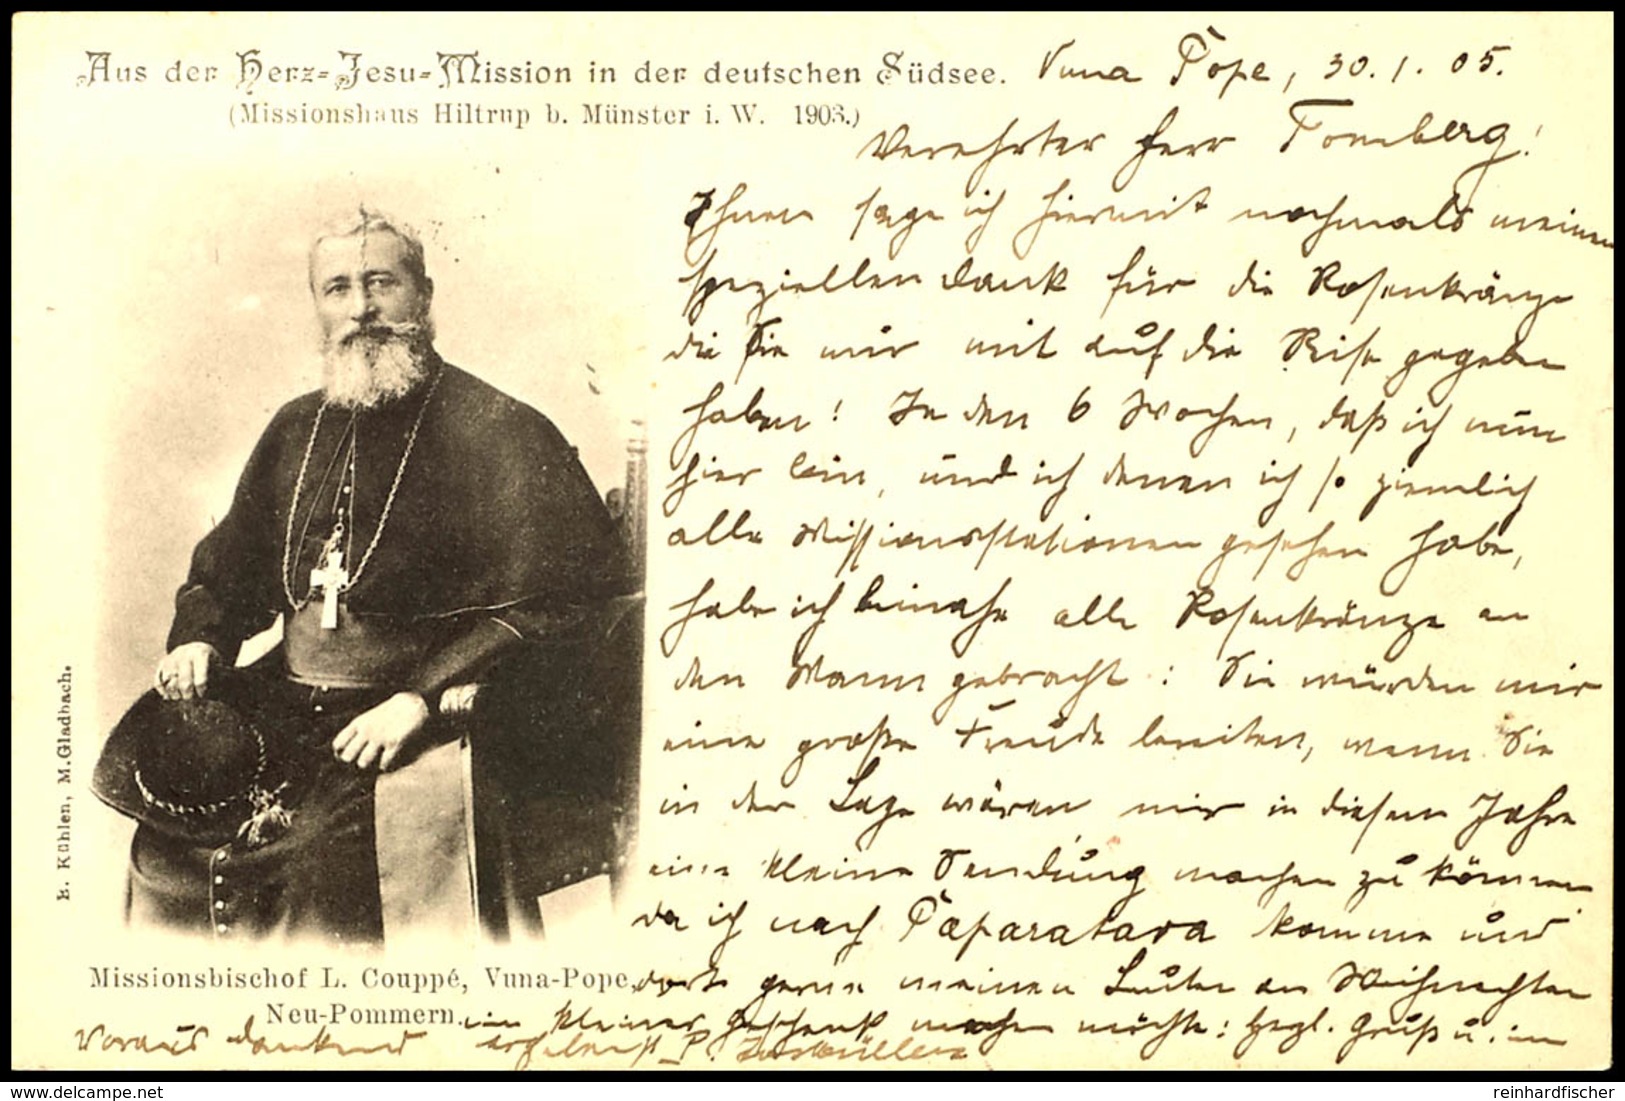 Aus der Herz-Jesu-Mission in der deutschen Südsee.
(Missionshaus Hiltrup b. Münster i. W. 1903.)
Vuna Pope, 30.1.05.
Verehrter Herr Tomberg!
Ihnen sage ich hiermit nochmals meinen
speziellen Dank für die Rosenkränze
die Sie mir mit auf die Reise gegeben
haben! In den 6 Wochen, daß ich nun
hier bin, und ich denen ich so ziemlich
alle Missionsstationen gesehen habe,
habe ich beinahe alle Rosenkränze an
den Mann gebracht: Sie würden mir
eine große Freude bereiten, wenn Sie
in der Lage wären mir in diesem Jahre
eine kleine Sendung machen zu können
da ich nach Paparatava komme und
dort gerne meinen Leuten an Weihnachten
ein kleines Geschenk machen möchte: Hzgl. Gruß u. im
Voraus dankend ergebenst P.
E. Kühlen, M.Gladbach.
Missionsbischof L. Couppé, Vuna-Pope,
Neu-Pommern.
ansichtskarten-center
reinhardfischer